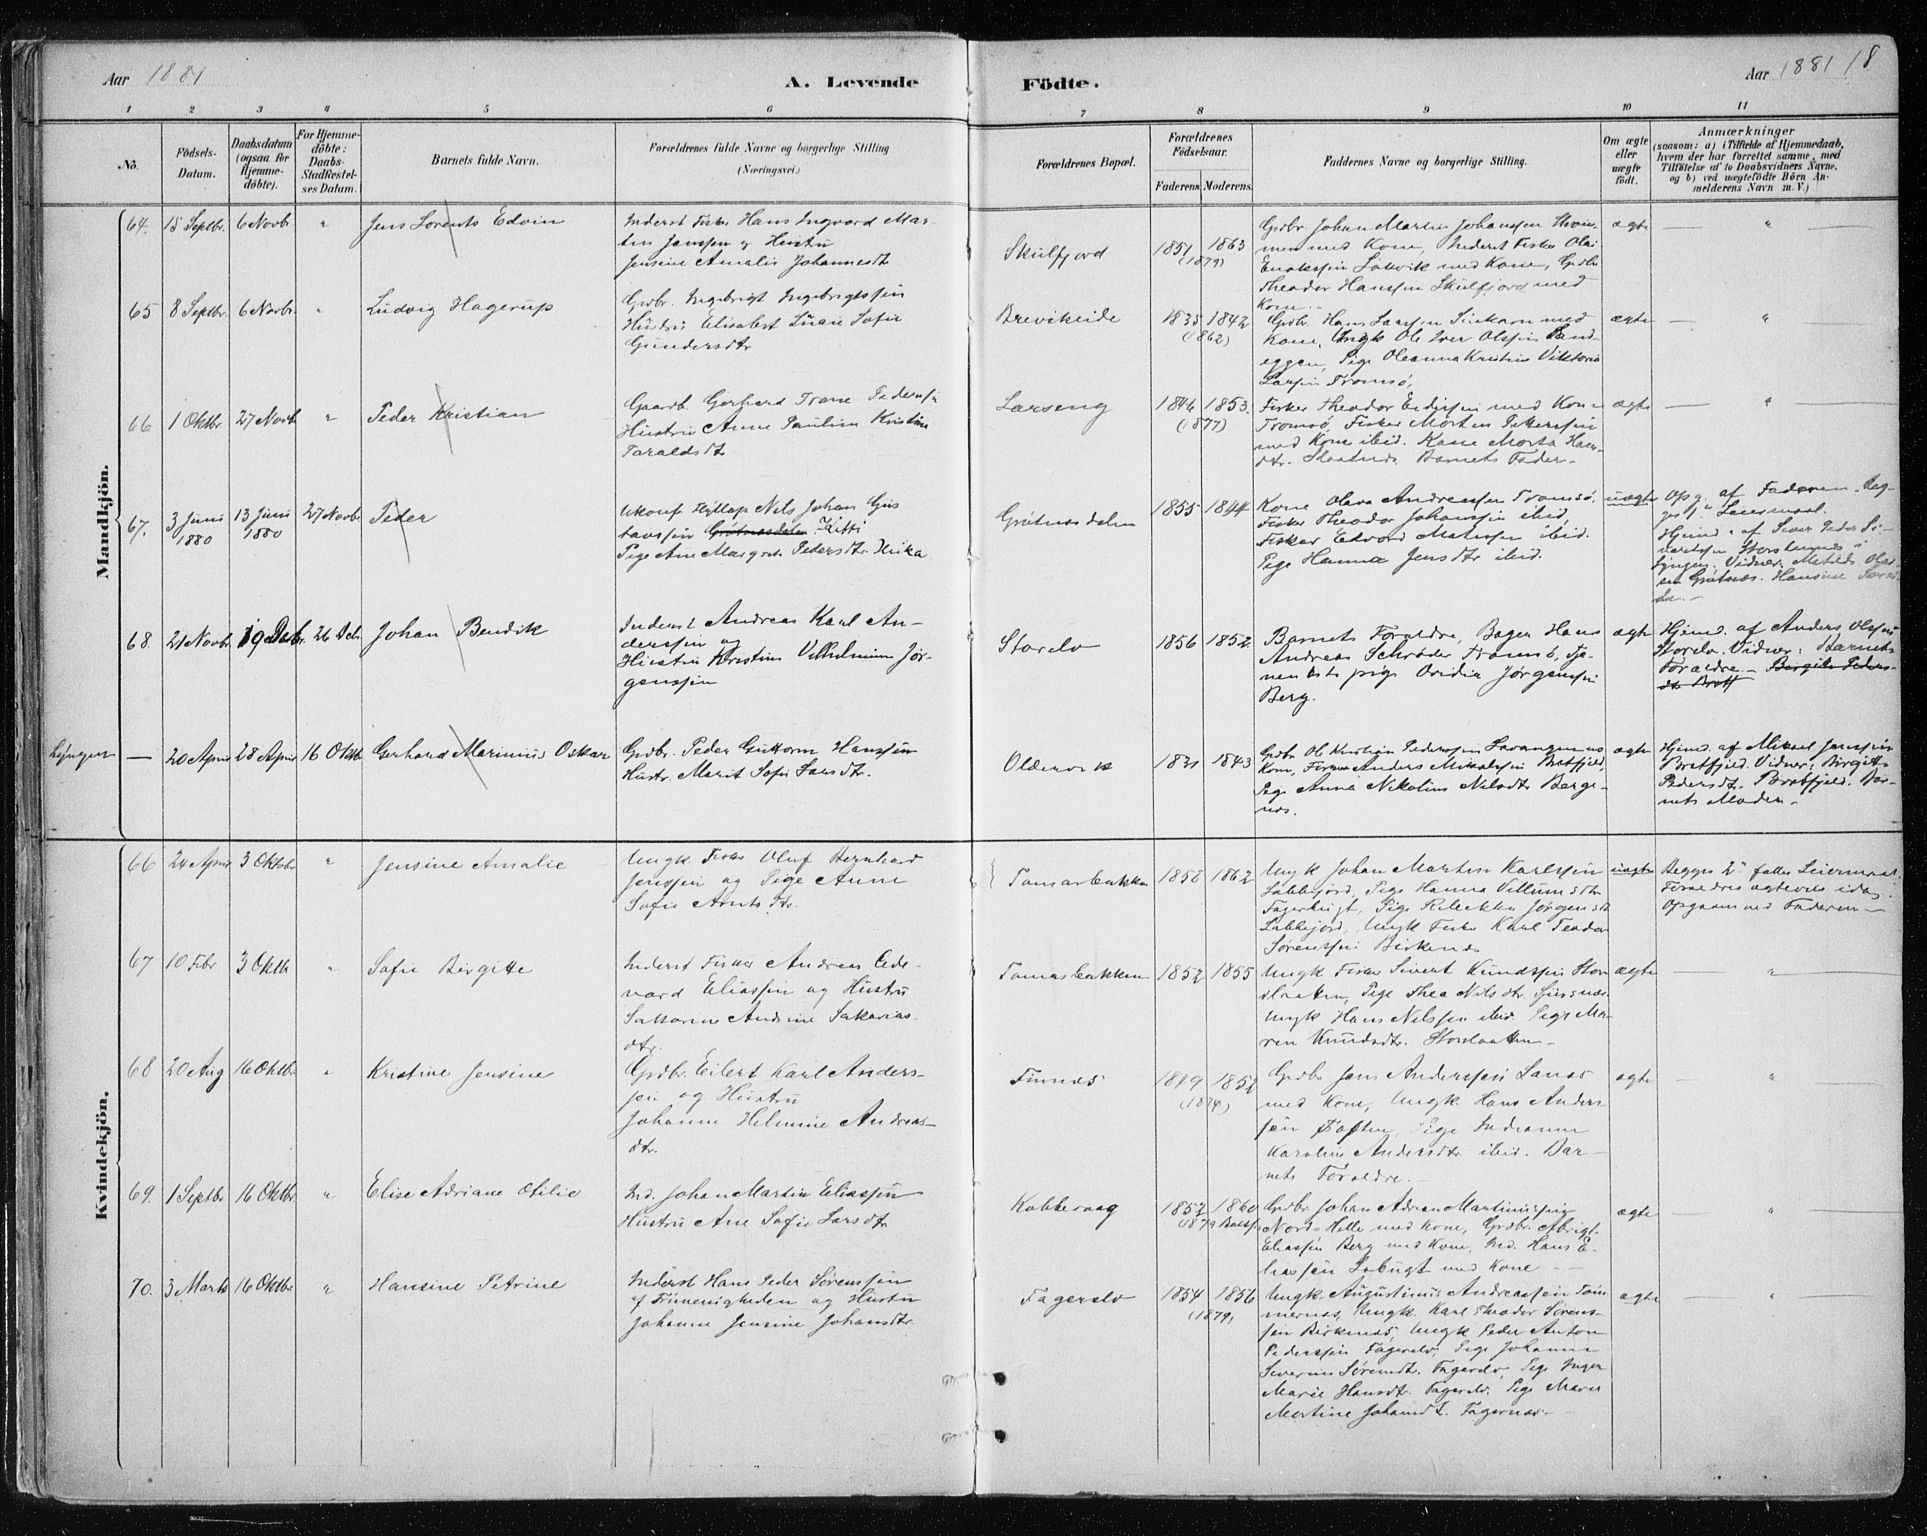 Aar 1881
A. Levende
Födte.
Aar 1881 18
1 2 3 4 5 6 7 8 9 10 11
Nö.
Födsels-
Datum.
Daabsdatum
(ogsaa for
Hjemme-
döbte).
For Hjemme-
döbte:
Daabs-
Stadfæstel-
ses Datum.
Barnets fulde Navn.
Forældrenes fulde Navne og borgerlige Stilling
(Næringsvei.)
Forældrenes Bopæl.
Forældrenes
Födselsaar.
Faderens. Moderens.
Faddernes Navne og borgerlige Stilling.
Om ægte
eller
uægte
födt.
Anmærkninger
(saasom: a) i Tilfælde af Hjemmedaab,
hvem der har forrettet samme, med
Tilföielse af to Daabsvidners Navne,
og b) ved uægtefödte Börn An-
melderens Navn m. V.)
Mandkjön.
64. 15 Septbr. 6 Novbr " Jens Lorents Edvin
Inderst Fisker Hans Ingvard Mar-
tin Jenssen og Hustru
Jensine Amalie Johannesdtr
Skulfjord 1851 1863
(1879)
Grdbr Johan Martin Johansen
med Kone, Inderst Fisker Olai
med Kone, Grdbr
Theodor Hanssen Skulfjord med
Kone.
ægte — " —
65 8 Septbr. 6 Novbr. " Ludvig Hagerup
Grdbr. Ingebrigt Ingebrigtssen
Hustru Elisabet Sofie
Gundersdtr
Breivikeide 1835 1842
(1862)
Grdbr. Hans Larssen med
Kone, Ungk Ole Iver Olssen
Pige Oleanna Kristine Viktoria
Larsen Tromsö.
ægte — " —
66 1 Oktbr. 27 Novb " Peder Kristian
Gaardb. Gerhard Trane Pedersen
Hustru Anne Pauline Kristine
Taraldsdtr
Larseng 1846 1853.
(1877)
Fisker Theodor med Kone
Tromsø, Fisker Morten Pettersen
med Kone ibid. Kone Marta Han
dtr. Barnets Fader.
ægte — " —
67. 3 Juni 1880 13 Juni 1880 27 Novbr Peder
Ukonf Nils Johan Gus
tavssen Grötnesdalen
Pige Ane Margrete Pedersdtr.
Grötnesdalen 1855 1844
Kone Olava Andreassen Tromsø,
Fisker Theodor Johansen ibid
Fisker Edvard Matissen ibid.
Pige Hanna Jensdtr ibid.
uægte
Opg. af Faderen. Beg-
ges 1ste Leiermaal.
Hjemd. af Peder Si-
vertsen i
Lyngen. Vidner: Matilde
Grötnes. Hansine
68 21 Novbr. 19 Decb. 26 Dcb. Johan Bendik
Inderst Andreas Karl An-
derssen og
Hustru Kristine Vilhelmine Jør-
genssen
Storelv 1856 1852
Barnets Foraldre, Bager Hans
Andreas Schröder Tromsø, Tje-
nende pige Ovidia Jörgensen
Berg.
ægte
Hjemd. af Anders Olssen
Storelv. Vidner: Barnets
Foraldre. Bergitte Peders-
dtr
Lyngen — 20 April 28 April 16 Oktb Gerhard Marinius Oskar
Grdbr. Peder Guttorm Hanssen
Hustr. Marit Sofie Larsdtr.
Oldervik 1831 1843
Grdbr Ole Kristian Pederssen
Kone, Anders Mikalsen Bratfjeld,
Pige Anna Nikoline Nilsdtr Berge-
nes.
ægte
Hjemd. af Mikael Jenssen
Bratfjeld. Vidner: Birgit
Pedersdtr. Bratfjeld. Bar-
nets Moder.
Kvindekjön.
66 24 April 3 Oktobr " Jensine Amalie
Ungk Fisker Oluf Bernhard
Jenssen og Pige Anne
Sofie Arntsdtr.
Tomasbakken 1858 1862
Ungk Johan Martin Karlssen
Pige Hanna Villumsdtr
Pige Rebekka Jørgensdtr
Ungk Fisker Karl Teodor
Sørenssen Birkenes
uægte
Begges 2det falles Leiermaal.
Foraldres idag
Opgiven ved Faderen —
67 10 Febr 3 Oktb " Sofie Birgitte
Inderst Fisker Andreas Ede-
vard Eliassen og Hustru
Andrine Sakarias-
dtr.
Tomasbakken 1852 1855
Ungk Fisker Sivert Knudssen Stor
slaatten, Pige Thea Nilsdtr.
Ungk Hans Nilssen ibid. Pige Ma-
ren Knudsdtr. Storslaatten —
ægte — " —
68 20 Aug 16 Oktbr " Kristine Jensine
Grdbr. Eilert Karl Anders-
sen og Hustru
Johanne Helmine Andreas-
dtr.
Finnes 1849 1852
(1874)
Grdbr Jens Anderssen
med Kone, Ungk. Hans Anders
sen Toften, Pige Indianna
Karoline Andersdtr ibid. Bar-
nets Foraldre.
ægte — " —
69. 1 Septbr 16 Oktbr " Elise Adriane Otilie
Ind. Johan Martin Eliassen
Hustru Ane Sofie Larsdtr
Kobbevaag 1852 1860
(1879 Balsfj.)
Grdbr. Johan Adrian Martinussen
Nord-Helle med Kone, Grdbr.
Eliassen Berg med Kone, Ind. Hans E-
liassen med Kone
ægte — " —
70. 3 Marts 16 Oktbr " Hansine Petrine
Inderst Hans Peder Sørenssen
af Frimenigheden og Hustru
Johanne Jensine Johansdtr.
Fagerelv 1854 1856
(1879)
Ungk Augustinus Andreassen Tøm
mernes, Ungk. Karl Theodor Sørens-
sen Birkenes, Ungk Peder Anton
Pederssen Fagerelv, Pige Johanne
Severine Sørensdtr. Fagerelv, Pige Inger
Marie Hansdtr. Fagerelv. Pige Maren
Martine Johansdtr. Fagernes.
ægte — " —